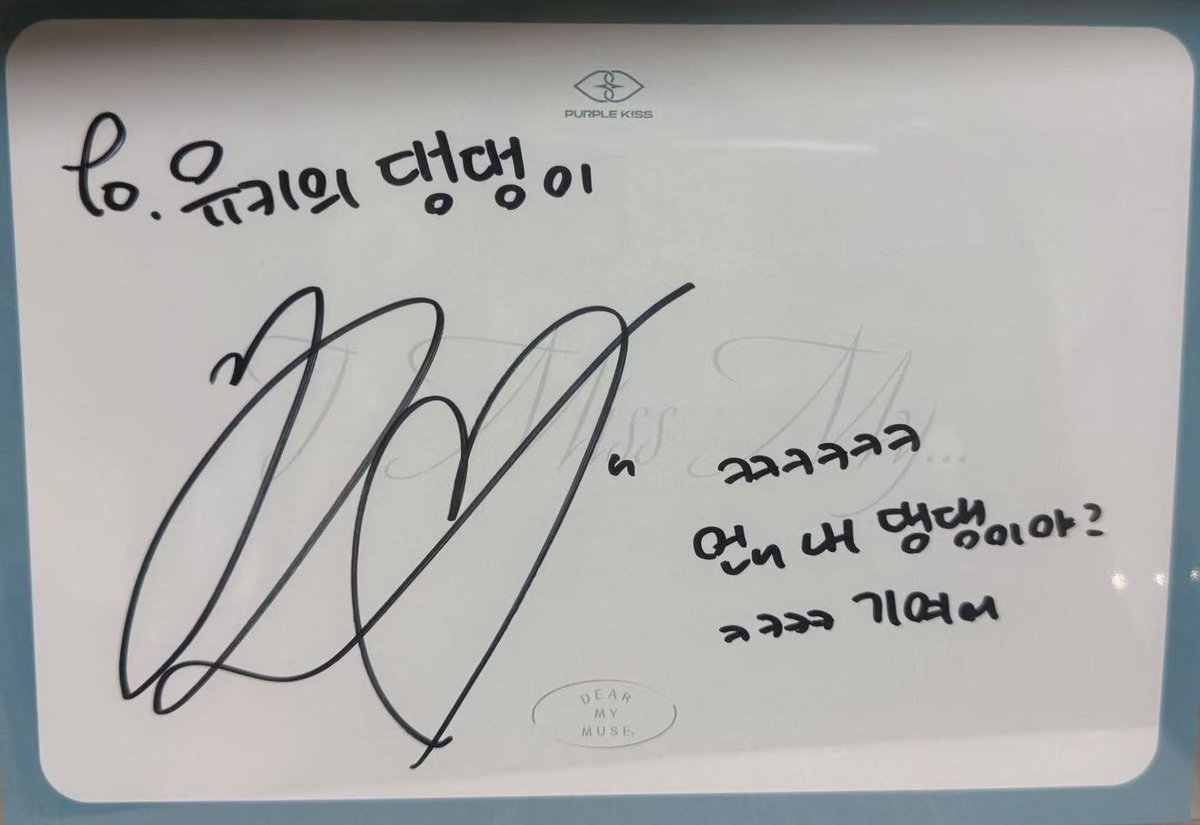 PURPLE K!SS
To. 유키의 댕댕이
I Miss My...
ㅋㅋㅋㅋㅋㅋ
언니 내 댕댕이야?
ㅋㅋㅋㅋ 기여어
DEAR
MY
MUSE.